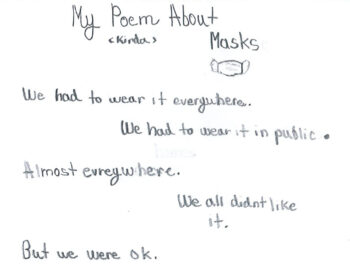 My Poem About
<Kinda>
Masks
We had to wear it everywhere.
We had to wear it in public.
Almost evreywhere.
We all didnt like
it.
But we were ok.